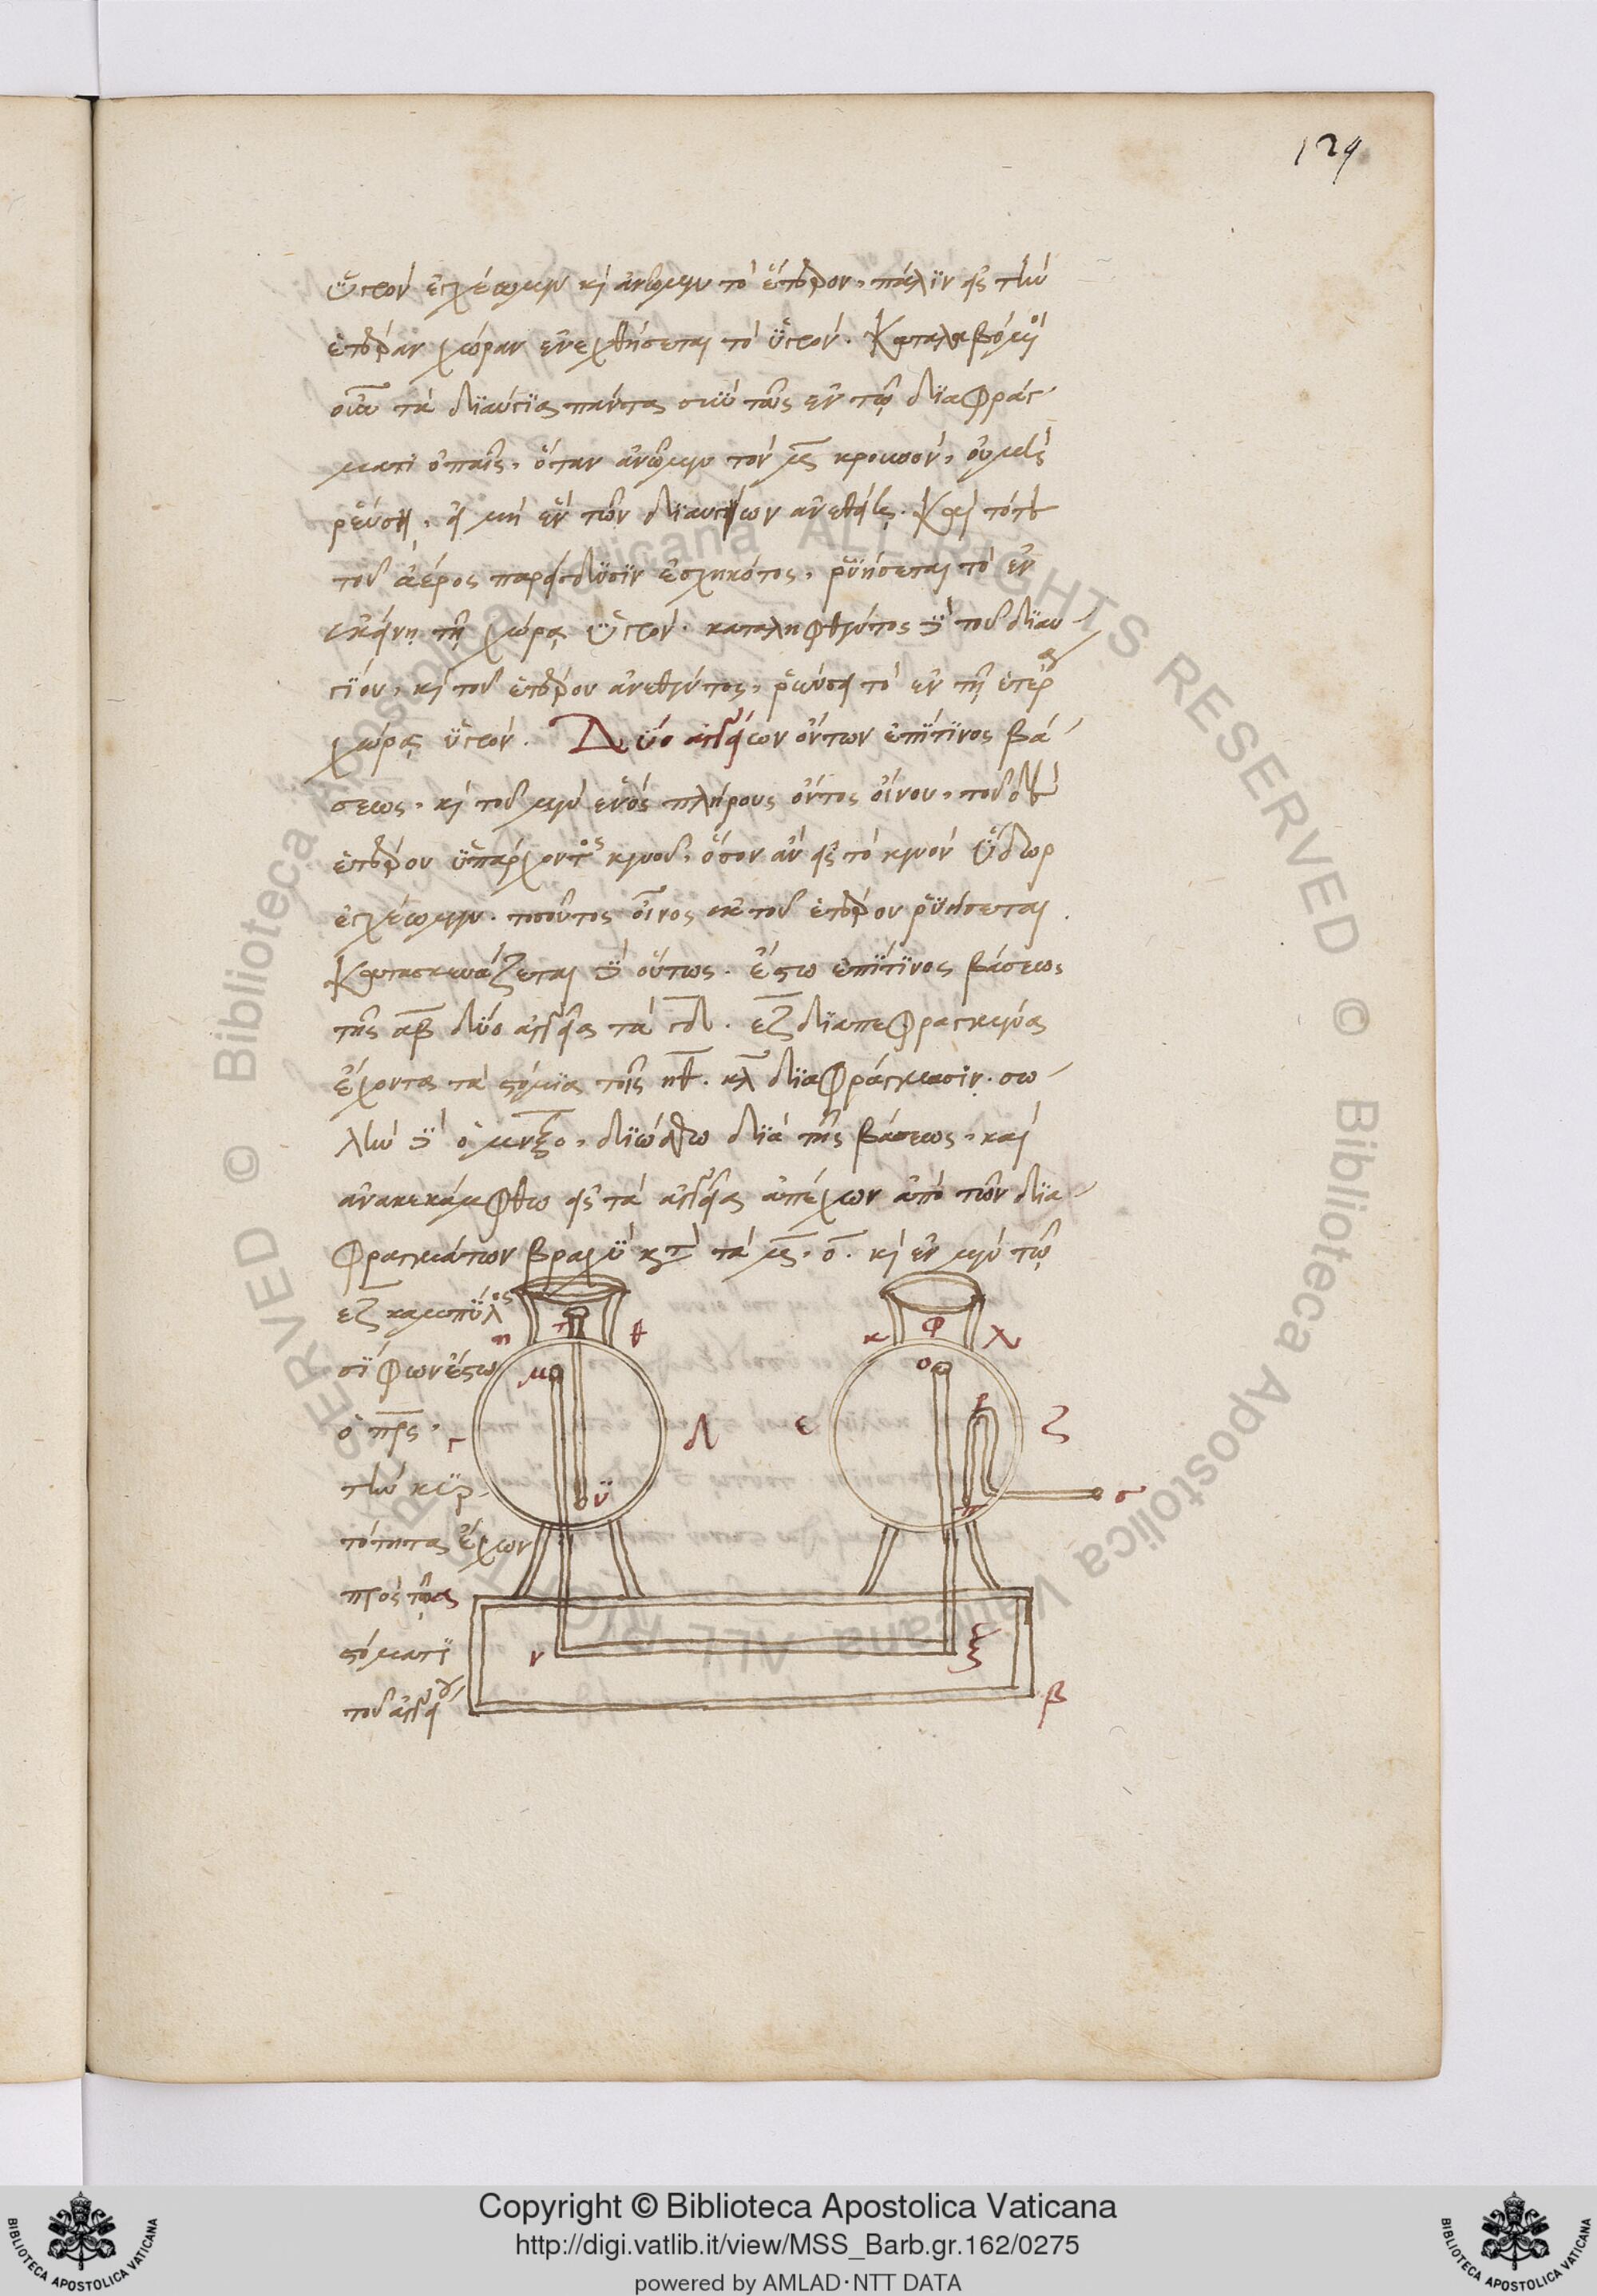 129
ὑγρὸν ἐγχέωμεν κὶ ἀνῶμεν τὸ ἕτερον, πάλιν εἰς τὴν
ἑτέραν χώραν ἐνεχθήσεται τὸ ὑγρόν. Καταλαβόμενοι
οὖν τὰ διαύγια πάντα σὺν ταῖς ἐν τῷ διαφράγ
ματι ὀπαῖς, ὅταν ἀνῶμεν τὸν μς κρουσὸν, οὐ μὲν
ῥεύσει, εἰ μὴ ἓν τῶν διαυγίων ἀνεθῇ. Καὶ τότε
τοῦ ἀέρος παρείσδυσιν ἐσχηκότος, ῥυήσεται τὸ ἐν
ἐκείνῃ τῇ χώρᾳ ὑγρόν. καταληφθέντος δὲ τοῦ διαυ
γίου, κὶ τοῦ ἑτέρου ἀνεθέντος, ῥεύσει τὸ ἐν τῇ ἑτέρᾳ
χώρᾳ ὑγρόν. Δύο ἀγγείων ὄντων ἐπί τινος βά
σεως, κὶ τοῦ μὲν ἑνὸς πλήρους ὄντος οἴνου, τοῦ δὲ
ἑτέρου ὑπάρχοντος κενοῦ, ὅσον ἂν εἰς τὸ κενὸν ὕδωρ
ἐγχέωμεν. τοσοῦτος οἶνος ἐκ τοῦ ἑτέρου ῥυήσεται.
Κατασκευάζεται δὲ οὕτως. ἔστω ἐπί τινος βάσεως
τῆς αβ δύο ἀγγεῖα τὰ γδ. εζ διαπεφραγμένα
ἔχοντα τὰ στόμια τοῖς ηθ. κλ διαφράγμασιν. σω
λὴν δὲ ὁ μνξο, διώσθω διὰ τῆς βάσεως, καὶ
ἀνακεκάμφθω εἰς τὰ ἀγγεῖα ἀπέχων ἀπὸ τῶν δια
φραγμάτων βραχὺ κατὰ τὰ μ. ο. κὶ ἐν μὲν τῷ
εζ καμπύλος
σίφων ἔστω
ὁ πρς.
τὴν κυρ
τότητα ἔχων
πρὸς τῷ
στόματι
τοῦ ἀγγείου
η τ θ κ φ χ
μ ο
γ δ ε ρ ζ
υ π σ
ν ξ
β
Copyright © Biblioteca Apostolica Vaticana
http://digi.vatlib.it/view/MSS_Barb.gr.162/0275
powered by AMLAD·NTT DATA